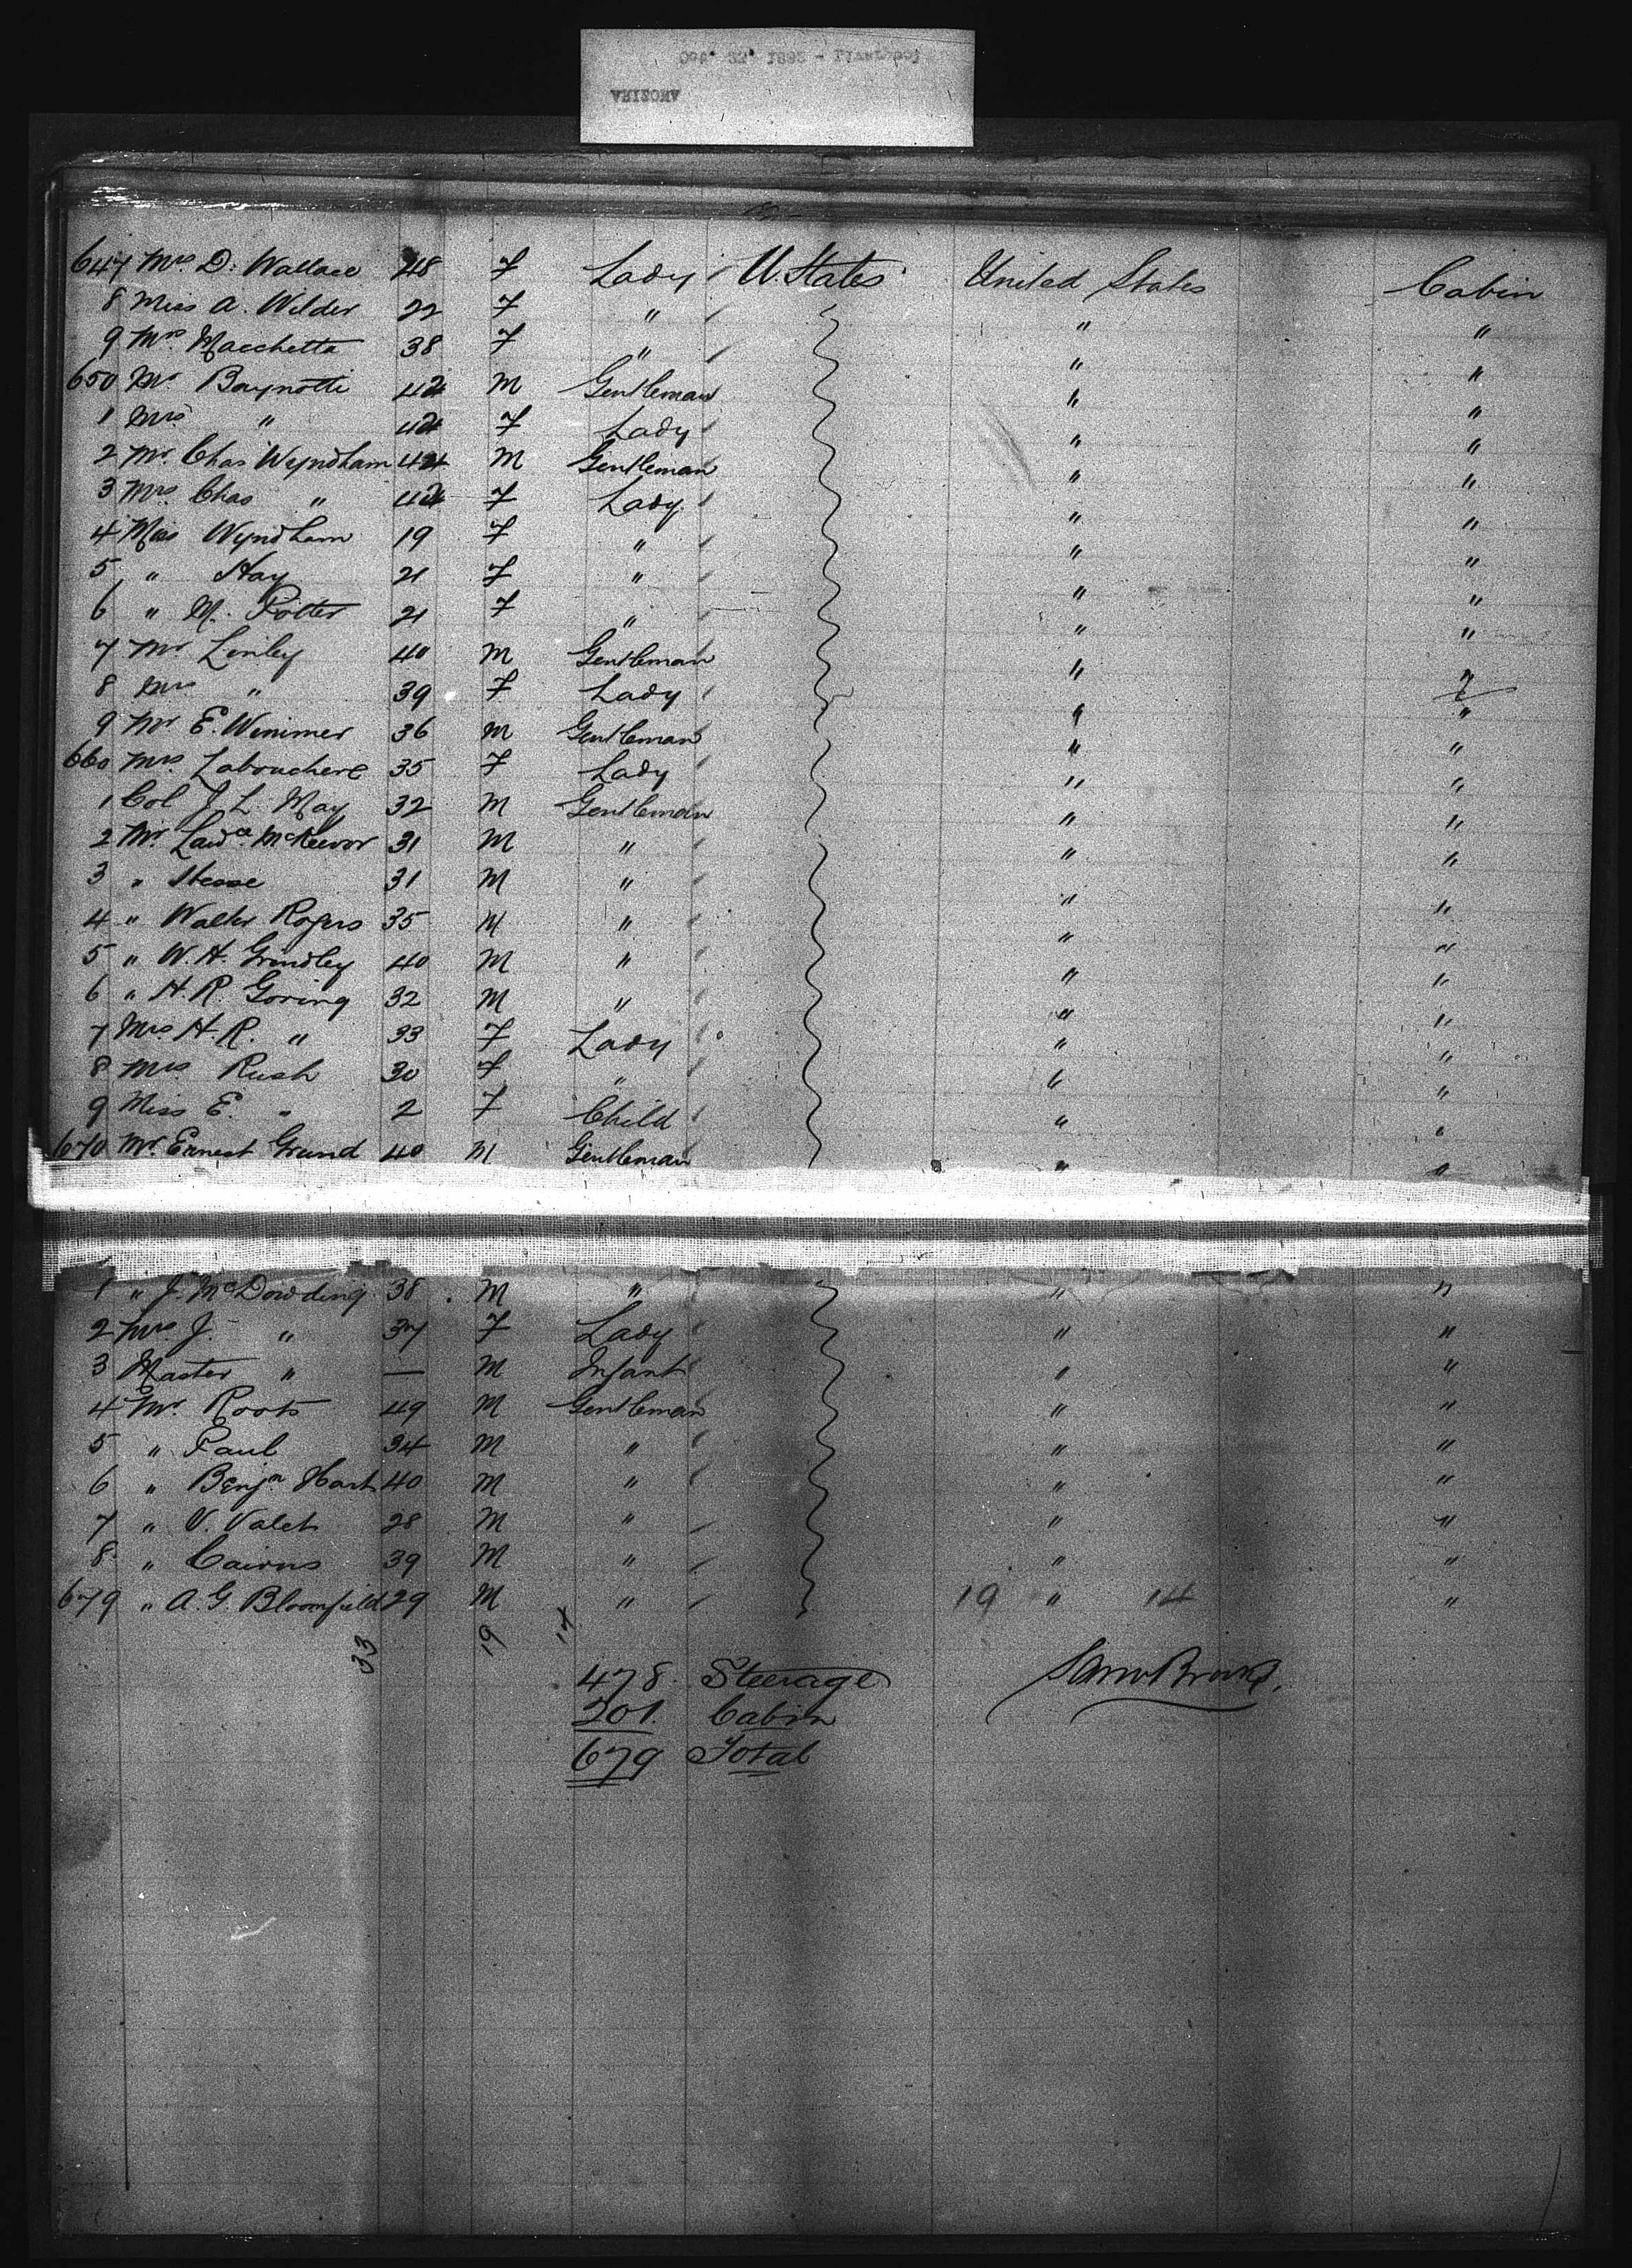 Oct. 22, 1882 - Liverpool
ARIZONA
647 Mrs D. Wallace 48 F Lady U. States United States Cabin
8 Miss A. Wilder 22 F " " "
9 Mrs Macchetta 38 F " " "
650 Mr Baynotti 42 M Gentleman " "
1 Mrs " 42 F Lady " "
2 Mr. Chas Wyndham 44 M Gentleman " "
3 Mrs Chas " 42 F Lady " "
4 Miss Wyndham 19 F " " "
5 " Hay 21 F " " "
6 " M. Potter 21 F " " "
7 Mr Linley 40 M Gentleman " "
8 Mrs " 39 F Lady " "
9 Mr E. Wenimer 36 M Gentleman " "
660 Mrs Labouchere 35 F Lady " "
1 Col J. L. May 32 M Gentleman " "
2 Mr. Lawce McKeevor 31 M " " "
3 " Hesse 31 M " " "
4 " Walter Rogers 35 M " " "
5 " W. H. Grindley 40 M " " "
6 " H. R. Goring 32 M " " "
7 Mrs H. R. " 33 F Lady " "
8 Mrs Rush 30 F " " "
9 Miss E. " 2 F Child " "
670 Mr. Ernest Grund 40 M Gentleman " "
1 " J. McDowding 38 M " " "
2 Mrs J. " 37 F Lady " "
3 Master " — M Infant " "
4 Mr. Roots 49 M Gentleman " "
5 " Paul 34 M " " "
6 " Benjn Hart 40 M " " "
7 " V. Valet 28 M " " "
8 " Cairns 39 M " " "
679 " A. G. Bloomfield 29 M " 19 " 14 "
33 19 14
478 Steerage
201 Cabin
679 Total